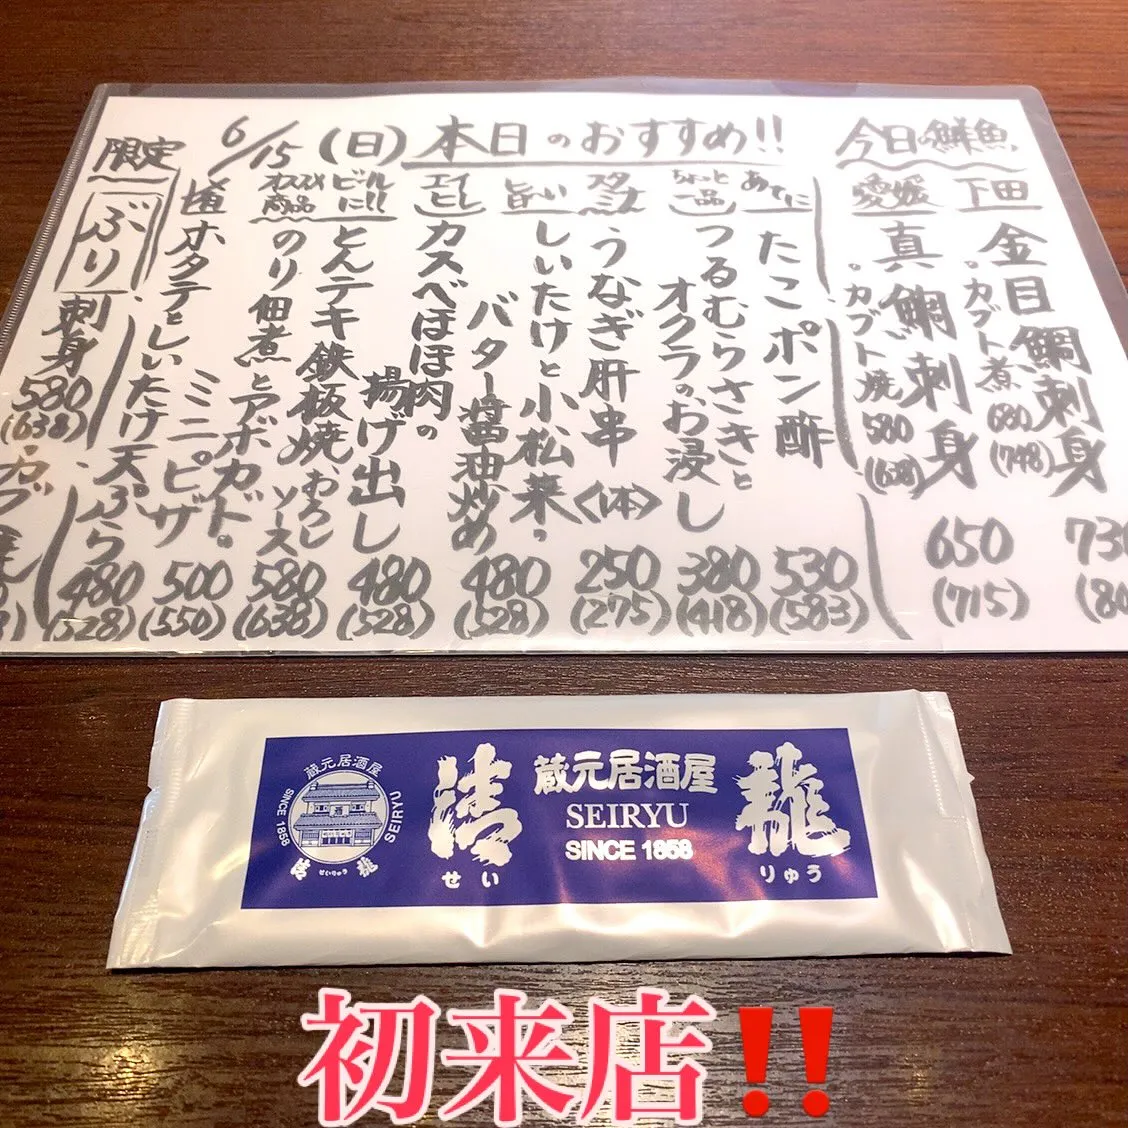 6/15(日) 本日のおすすめ!!
今日の鮮魚
下田
金目鯛刺身
730
・カブト煮
680
(748)
愛媛
真鯛刺身
650
(715)
・カブト焼
580
(638)
あてに
たこポン酢
530
(583)
ちょっと一品
つるむらさきと
オクラのお浸し
380
(418)
スタミナ
うなぎ肝串
〈1本〉
250
(275)
旨い
しいたけと小松菜の
バター醤油炒め
480
(528)
エイヒレ
カスベほほ肉の
揚げ出し
480
(528)
ビールに!!
とんテキ鉄板焼
おろしソース
580
(638)
オススメ商品
のり佃煮とアボカド
ミニピザ
500
(550)
ホタテとしいたけ天ぷら
480
(528)
限定
ぶり
刺身
580
(638)
蔵元居酒屋
SINCE 1858
SEIRYU
清龍
せいりゅう
清龍
せい
りゅう
蔵元居酒屋
SEIRYU
SINCE 1858
初来店‼